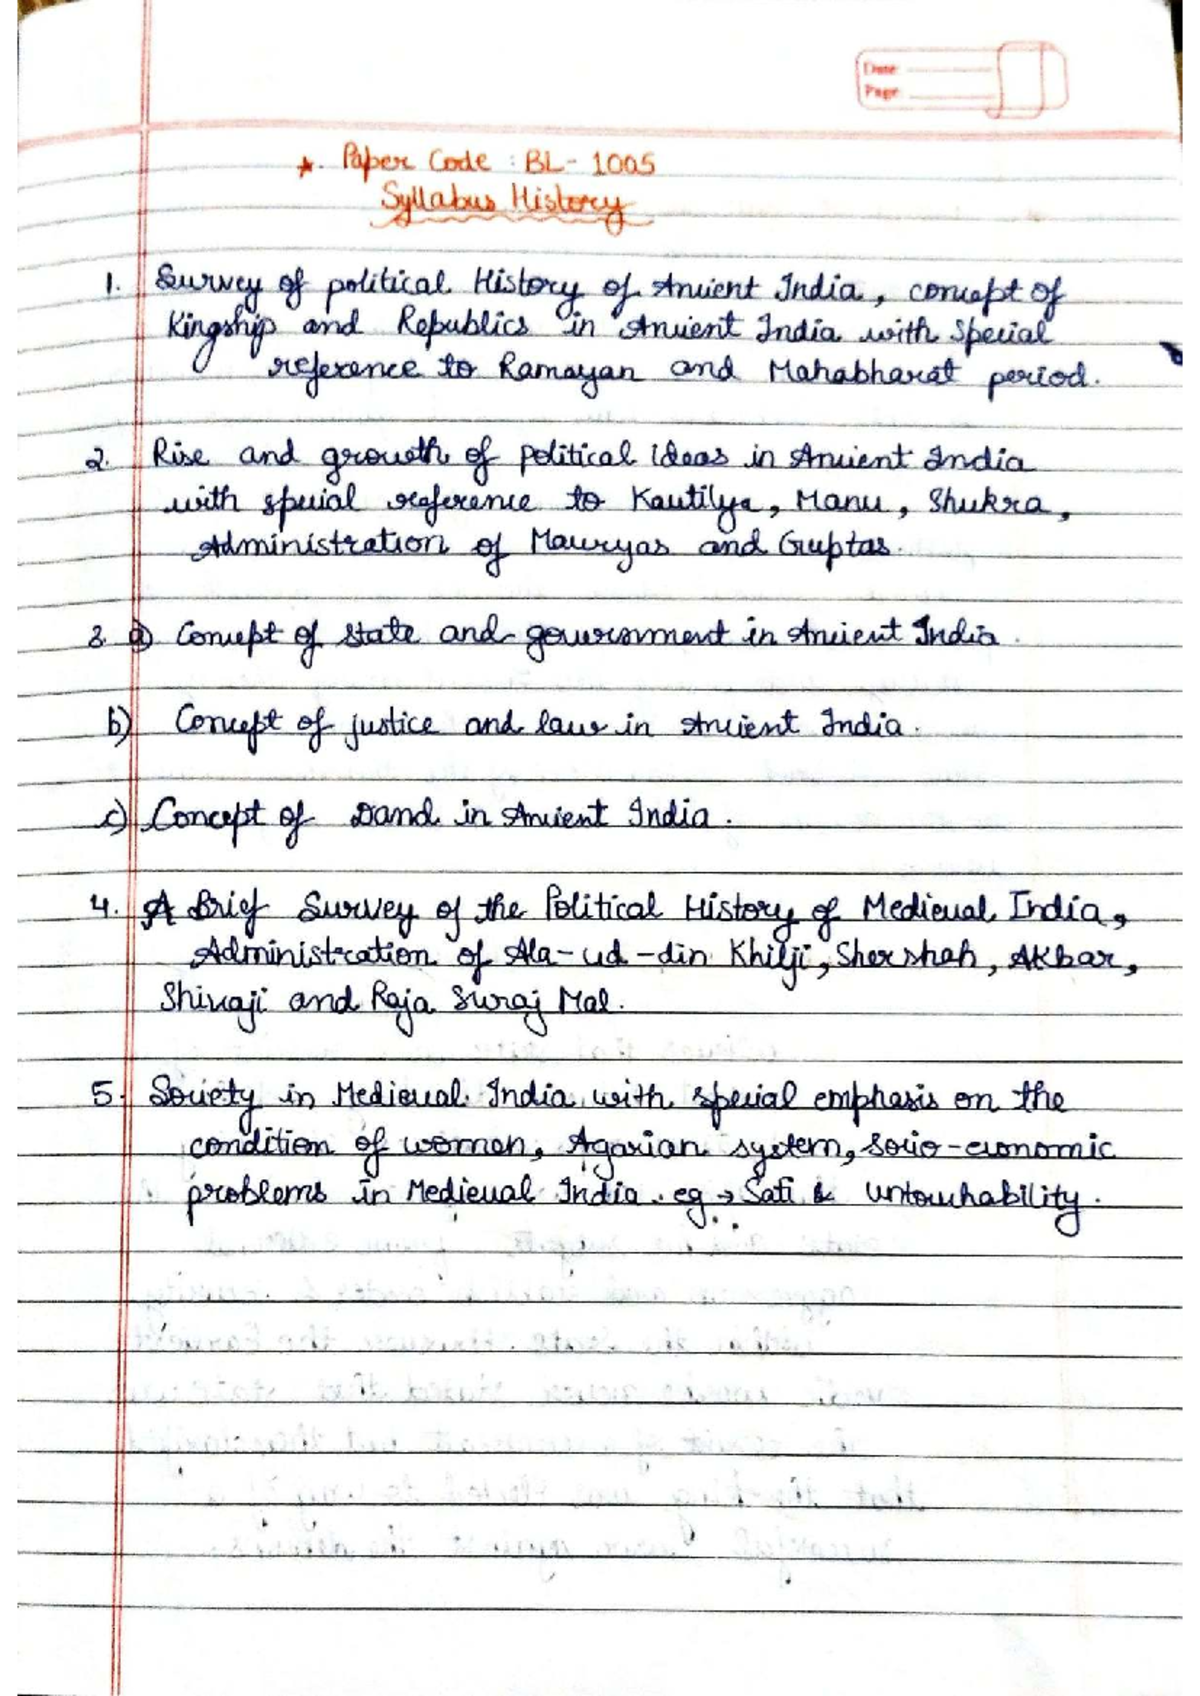 Date
Page
★. Paper Code : BL- 1005
Syllabus History
1. Survey of political History of Ancient India, concept of
Kingship and Republics in Ancient India with special
reference to Ramayan and Mahabharat period.
2. Rise and growth of political ideas in Ancient India
with special reference to Kautilya, Manu, Shukra,
Administration of Mauryas and Guptas.
3. a) Concept of state and government in Ancient India.
b) Concept of justice and law in Ancient India.
c) Concept of Dand in Ancient India.
4. A Brief Survey of the Political History of Medieval India,
Administration of Ala-ud-din Khilji, Shershah, Akbar,
Shivaji and Raja Suraj Mal.
5. Society in Medieval India with special emphasis on the
condition of women, Agarian system, Socio-economic
problems in Medieval India. eg → Sati & Untouchability.